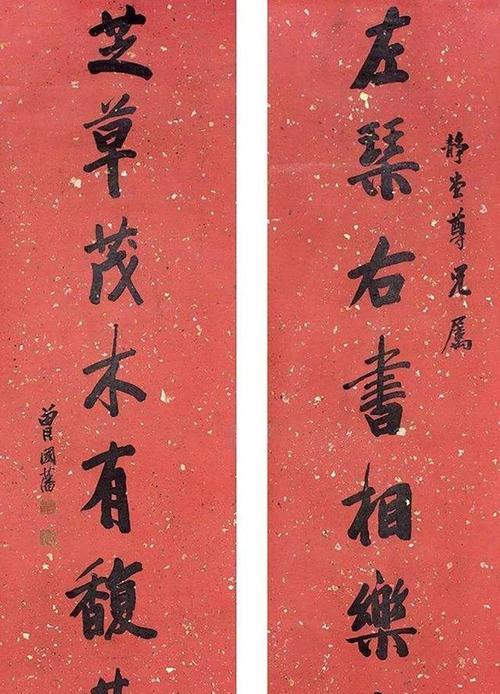 静堂尊兄屬
左琴右書相樂
芝草茂木有馥
曾國藩